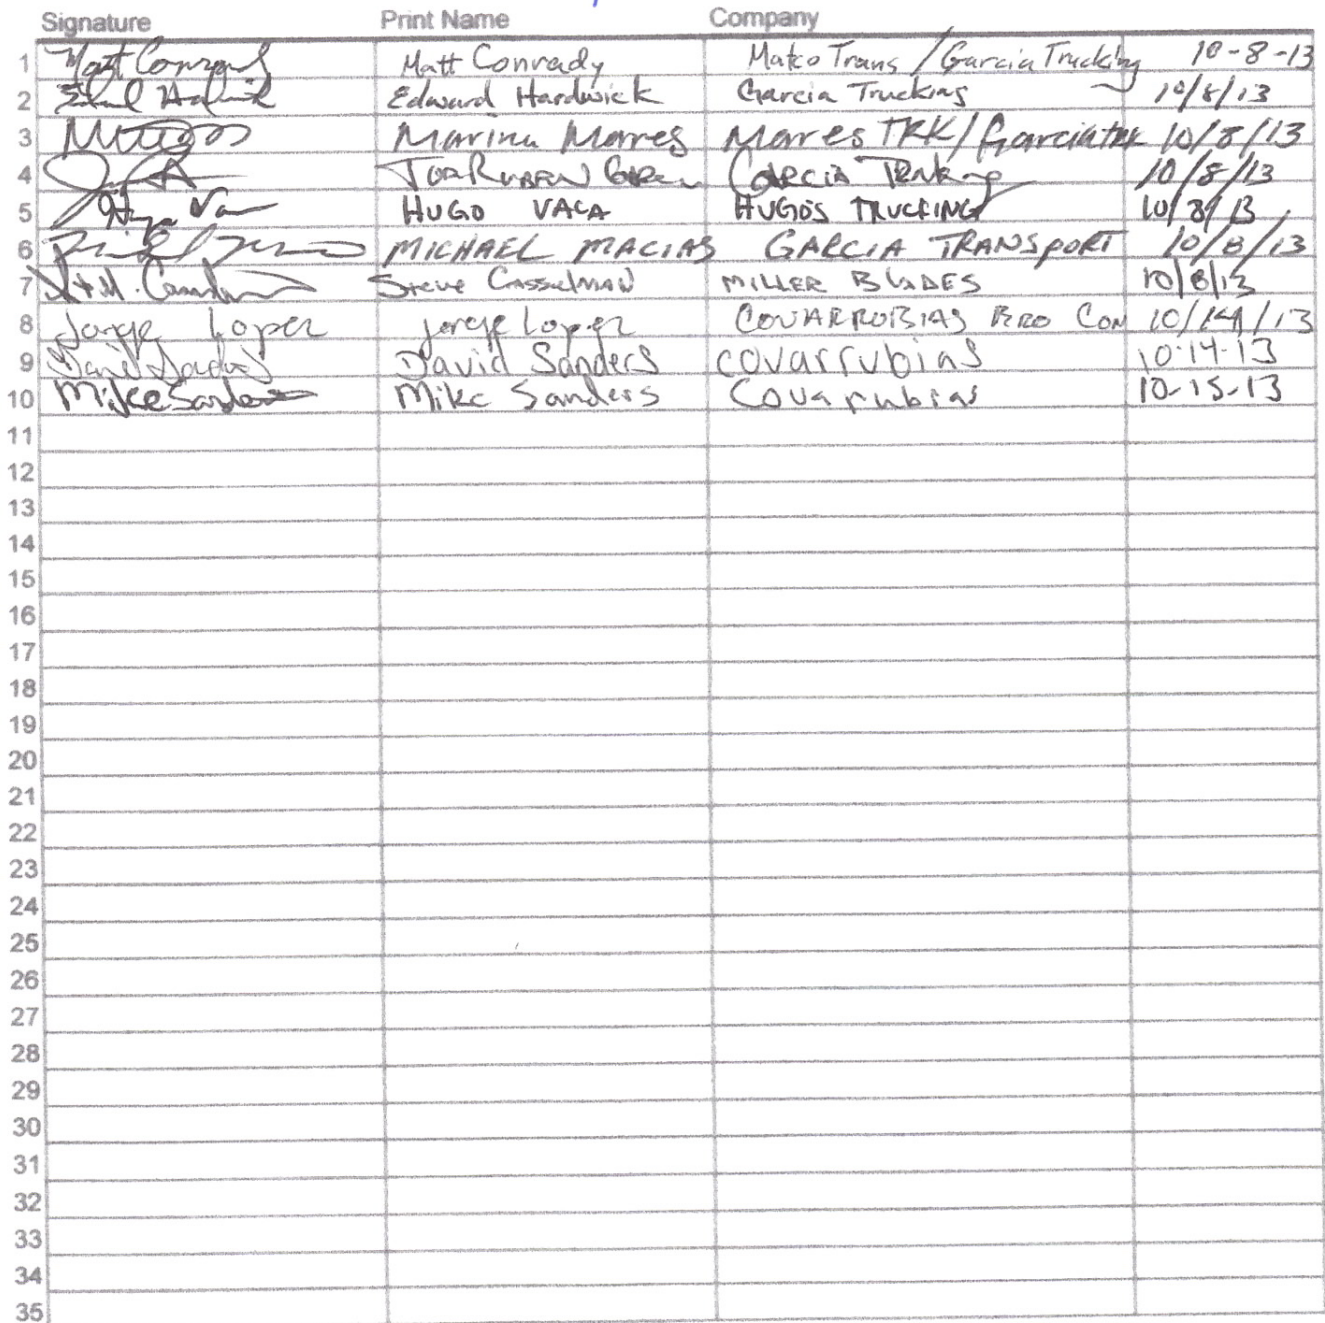 Signature Print Name Company
1 Matt Conrady Matt Conrady Matco Trans / Garcia Trucking 10-8-13
2 Edward Hardwick Garcia Trucking 10/8/13
3 Marina Marres Marres TRK/Garcia TRK 10/8/13
4 Garcia 10/8/13
5 Hugo Va HUGO VACA HUGOS TRUCKING 10/8/13
6 MICHAEL MACIAS GARCIA TRANSPORT 10/8/13
7 Steve Casselman MILLER BLADES 10/8/13
8 Jorge Lopez Jorge Lopez COVARROBIAS BRO CON 10/14/13
9 David Sanders David Sanders covarrubias 10-14-13
10 Mike Sanders Mike Sanders Covarrubias 10-15-13
11
12
13
14
15
16
17
18
19
20
21
22
23
24
25
26
27
28
29
30
31
32
33
34
35